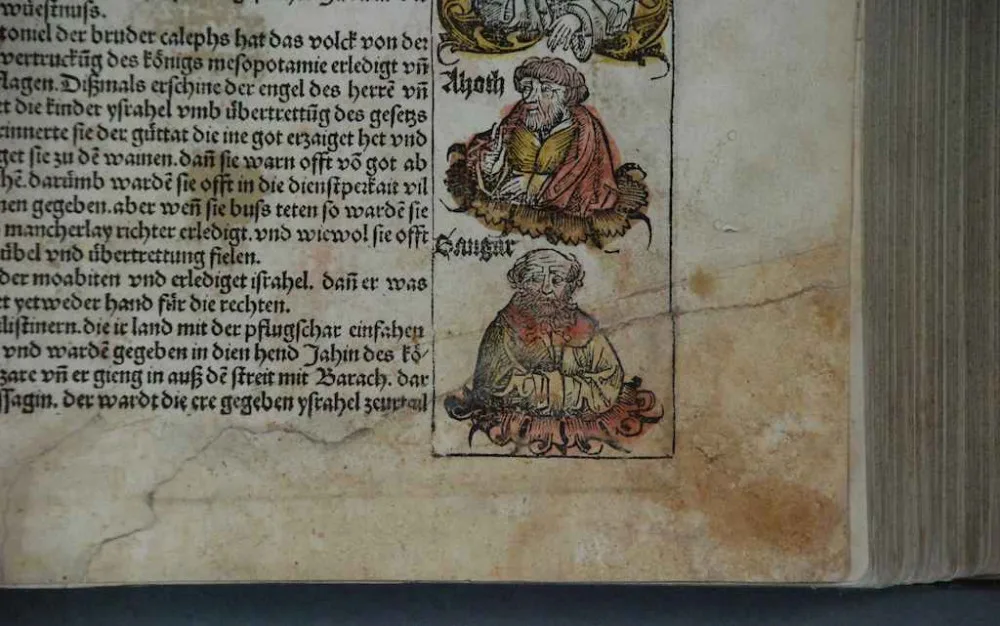 wüestnuss.
toniel der bruder calephs hat das volck von der
vertruckũg des königs mesopotamie erledigt vñ
lagen. Dißmals erschine der engel des herrẽ vñ
t die kinder ysrahel vmb übertrettũg des gesetzs
rinnerte sie der güttat die ine got erzaiget het vnd
get sie zu dẽ wainen. dañ sie warn offt võ got ab
hẽ. darũmb wardẽ sie offt in die dienstperkait vil
nen gegeben. aber weñ sie buss teten so wardẽ sie
mancherlay richter erledigt. vnd wiewol sie offt
übel vnd übertrettung fielen.
der moabiten vnd erlediget israhel. dañ er was
t yetweder hand für die rechten.
listinern. die ir land mit der pflugschar einfahen
vnd wardẽ gegeben in dien hend Jahin des kö-
zare vñ er gieng in auß dẽ streit mit Barach. dar
ssagin. der wardt die ere gegeben ysrahel zeurtail
Ahoth
Sangar